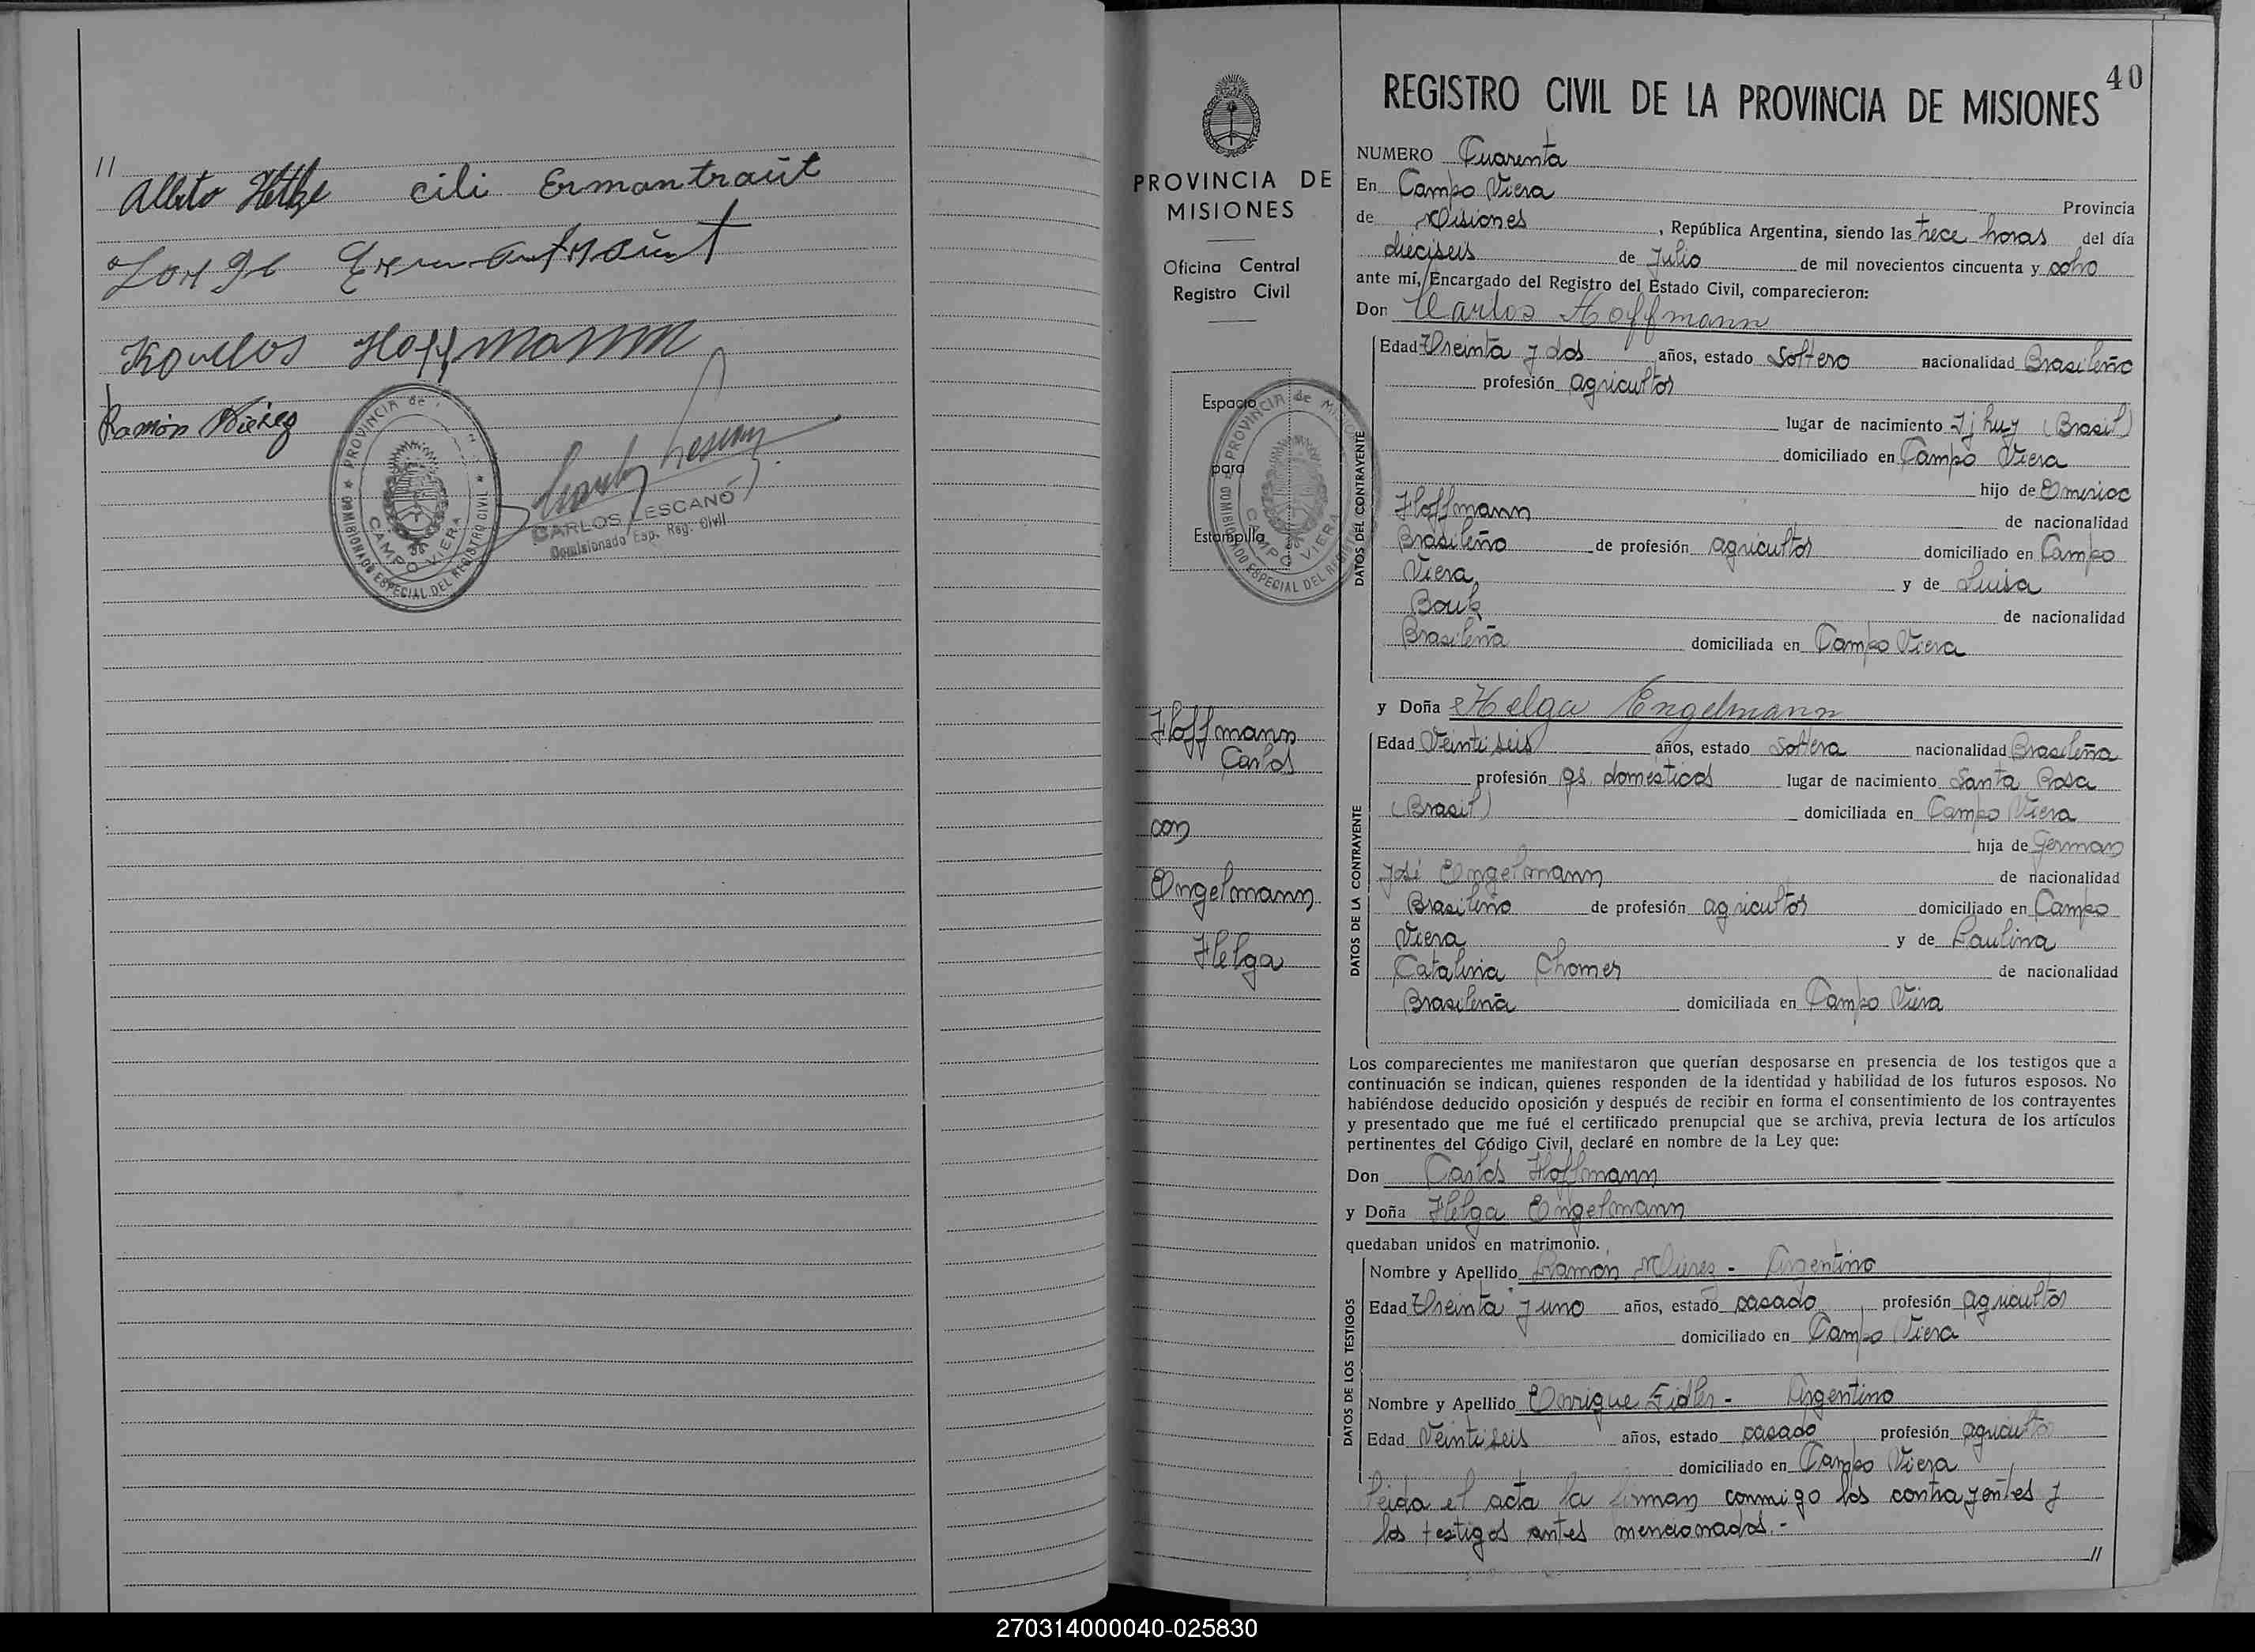 //
Alberto Hettge cili Ermantraut
Jorge Ermantraut
Hoffmann
Ramón
PROVINCIA de
COMISIONADO ESPECIAL DEL REGISTRO CIVIL
CAMPO VIERA
CARLOS LESCANO
Comisionado Esp. Reg. Civil
PROVINCIA DE
MISIONES
Oficina Central
Registro Civil
Espacio
para
Estampilla
PROVINCIA de MISIONES
COMISIONADO ESPECIAL DEL REGISTRO
CAMPO VIERA
Hoffmann
Carlos
con
Engelmann
Helga
40
REGISTRO CIVIL DE LA PROVINCIA DE MISIONES
NUMERO Cuarenta
En Campo Viera Provincia
de Misiones, República Argentina, siendo las trece horas del día
dieciseis de Julio de mil novecientos cincuenta y ocho
ante mí, Encargado del Registro del Estado Civil, comparecieron:
Don Carlos Hoffmann
DATOS DEL CONTRAYENTE
Edad Treinta y dos años, estado Soltero nacionalidad Brasileño
profesión agricultor
lugar de nacimiento Ijhuy (Brasil)
domiciliado en Campo Viera
hijo de Emerico
Hoffmann de nacionalidad
Brasileño de profesión agricultor domiciliado en Campo
Viera y de Luisa
Bouk de nacionalidad
Brasileña domiciliada en Campo Viera
y Doña Helga Engelmann
DATOS DE LA CONTRAYENTE
Edad Veintiseis años, estado Soltera nacionalidad Brasileña
profesión qs. domésticos lugar de nacimiento Santa Rosa
(Brasil) domiciliada en Campo Viera
hija de German
José Engelmann de nacionalidad
Brasileño de profesión agricultor domiciliado en Campo
Viera y de Paulina
Catalina Chomer de nacionalidad
Brasileña domiciliada en Campo Viera
Los comparecientes me manifestaron que querían desposarse en presencia de los testigos que a
continuación se indican, quienes responden de la identidad y habilidad de los futuros esposos. No
habiéndose deducido oposición y después de recibir en forma el consentimiento de los contrayentes
y presentado que me fué el certificado prenupcial que se archiva, previa lectura de los artículos
pertinentes del Código Civil, declaré en nombre de la Ley que:
Don Carlos Hoffmann
y Doña Helga Engelmann
quedaban unidos en matrimonio.
DATOS DE LOS TESTIGOS
Nombre y Apellido Ramón Mierez - Argentino
Edad Treinta y uno años, estado casado profesión agricultor
domiciliado en Campo Viera
Nombre y Apellido Enrique Fidler - Argentino
Edad Veintiseis años, estado casado profesión agricultor
domiciliado en Campo Viera
Leida el acta la firman conmigo los contrayentes y
los testigos antes mencionados.-
//
270314000040-025830